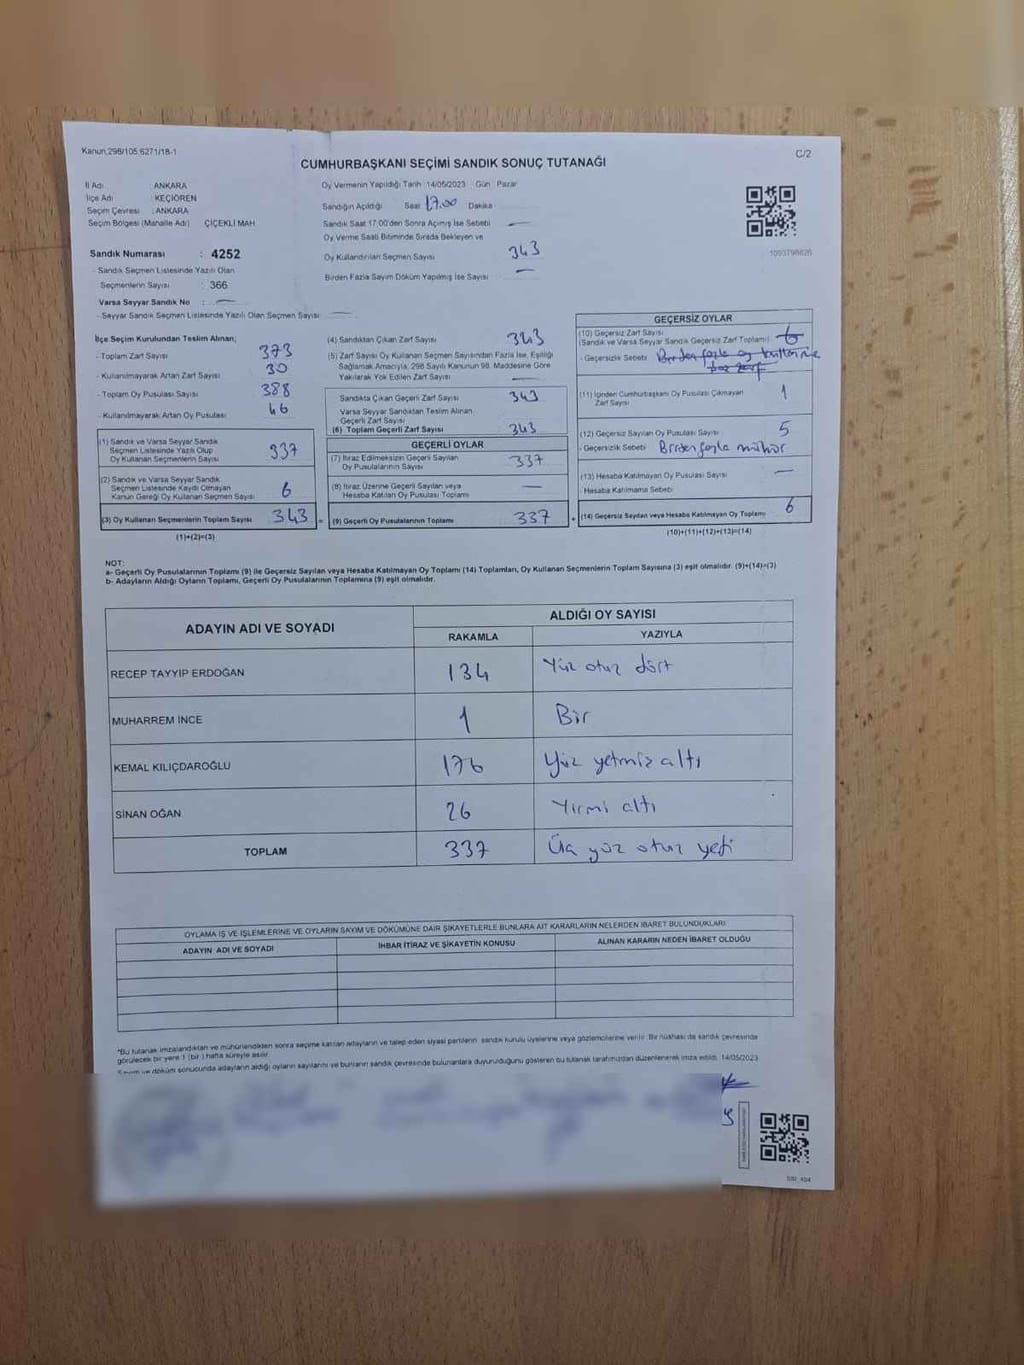 Kanun,298/105,6271/18-1
C/2
CUMHURBAŞKANI SEÇİMİ SANDIK SONUÇ TUTANAĞI
İl Adı ANKARA
İlçe Adı : KEÇİÖREN
Seçim Çevresi : ANKARA
Seçim Bölgesi (Mahalle Adı) ÇİÇEKLİ MAH
Sandık Numarası : 4252
- Sandık Seçmen Listesinde Yazılı Olan
Seçmenlerin Sayısı : 366
Varsa Seyyar Sandık No : —
- Seyyar Sandık Seçmen Listesinde Yazılı Olan Seçmen Sayısı : —
Oy Vermenin Yapıldığı Tarih 14/05/2023 Gün : Pazar
Sandığın Açıldığı Saat 17.00 Dakika
Sandık Saat 17.00'den Sonra Açımış İse Sebebi —
Oy Verme Saati Bitiminde Sırada Bekleyen ve
Oy Kullandırılan Seçmen Sayısı 343
Birden Fazla Sayım Döküm Yapılmış İse Sayısı —
1093798626
İlçe Seçim Kurulundan Teslim Alınan;
- Toplam Zarf Sayısı 373
- Kullanılmayarak Artan Zarf Sayısı 30
- Toplam Oy Pusulası Sayısı 388
- Kullanılmayarak Artan Oy Pusulası 46
(1) Sandık ve Varsa Seyyar Sandık
Seçmen Listesinde Yazılı Olup
Oy Kullanan Seçmenlerin Sayısı 337
(2) Sandık ve Varsa Seyyar Sandık
Seçmen Listesinde Kayıtlı Olmayan
Kanun Gereği Oy Kullanan Seçmen Sayısı 6
(3) Oy Kullanan Seçmenlerin Toplam Sayısı 343 =
(1)+(2)=(3)
(4) Sandıktan Çıkan Zarf Sayısı 343
(5) Zarf Sayısı Oy Kullanan Seçmen Sayısından Fazla İse, Eşitliği
Sağlamak Amacıyla, 298 Sayılı Kanunun 98. Maddesine Göre
Yakılarak Yok Edilen Zarf Sayısı —
Sandıkta Çıkan Geçerli Zarf Sayısı 343
Varsa Seyyar Sandıktan Teslim Alınan
Geçerli Zarf Sayısı
(6) Toplam Geçerli Zarf Sayısı 343
GEÇERLİ OYLAR
(7) İtiraz Edilmeksizin Geçerli Sayılan
Oy Pusulalarının Sayısı 337
(8) İtiraz Üzerine Geçerli Sayılan veya
Hesaba Katılan Oy Pusulası Toplamı —
(9) Geçerli Oy Pusulalarının Toplamı 337 +
GEÇERSİZ OYLAR
(10) Geçersiz Zarf Sayısı
(Sandık ve Varsa Seyyar Sandık Geçersiz Zarf Toplamı) 6
- Geçersizlik Sebebi Birden fazla oy
boş zarf
(11) İçinden Cumhurbaşkanı Oy Pusulası Çıkmayan
Zarf Sayısı 1
(12) Geçersiz Sayılan Oy Pusulası Sayısı 5
- Geçersizlik Sebebi Birden fazla mühür
(13) Hesaba Katılmayan Oy Pusulası Sayısı —
Hesaba Katılmama Sebebi
(14) Geçersiz Sayılan veya Hesaba Katılmayan Oy Toplamı 6
(10)+(11)+(12)+(13)=(14)
NOT:
a- Geçerli Oy Pusulalarının Toplamı (9) ile Geçersiz Sayılan veya Hesaba Katılmayan Oy Toplamı (14) Toplamları, Oy Kullanan Seçmenlerin Toplam Sayısına (3) eşit olmalıdır. (9)+(14)=(3)
b- Adayların Aldığı Oyların Toplamı, Geçerli Oy Pusulalarının Toplamına (9) eşit olmalıdır.
ADAYIN ADI VE SOYADI ALDIĞI OY SAYISI
RAKAMLA YAZIYLA
RECEP TAYYİP ERDOĞAN 134 Yüz otuz dört
MUHARREM İNCE 1 Bir
KEMAL KILIÇDAROĞLU 176 Yüz yetmiş altı
SİNAN OĞAN 26 Yirmi altı
TOPLAM 337 Üç yüz otuz yedi
OYLAMA İŞ VE İŞLEMLERİNE VE OYLARIN SAYIM VE DÖKÜMÜNE DAİR ŞİKAYETLERLE BUNLARA AİT KARARLARIN NELERDEN İBARET BULUNDUKLARI
ADAYIN ADI VE SOYADI İHBAR İTİRAZ VE ŞİKAYETİN KONUSU ALINAN KARARIN NEDEN İBARET OLDUĞU
*Bu tutanak imzalandıktan ve mühürlendikten sonra seçime katılan adayların ve talep eden siyasi partilerin sandık kurulu üyelerine veya gözlemcilerine verilir. Bir nüshası da sandık çevresinde
görülecek bir yere 1 (bir ) hafta süreyle asılır.
Sayım ve döküm sonucunda adayların aldığı oyların sayılarını ve bunların sandık çevresinde bulunanlara duyurulduğunu gösteren bu tutanak tarafımızdan düzenlenerek imza edildi. 14/05/2023